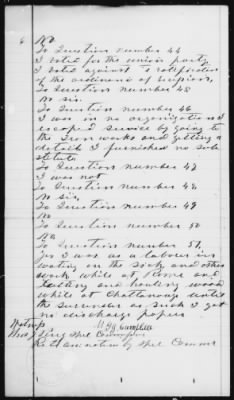 6
No
To Question number 44
I voted for the union party,
I voted against ratification
of the ordinance of
To Question number 45
No sir.
To Question number 46
I was in no organization I
escaped service by going to
the Iron works and getting a
detail I furnished no sub
stitute
To Question number 47
I was not
To Question number 48
No sir,
To Question number 49
No
To Question number 50
No
To Question number 51,
yes I was as a laborer in
waiting on the sick and other
work while at Rome and
and hauling wood
while at Chattanooga until
the surrender as such I got
no discharge papers.